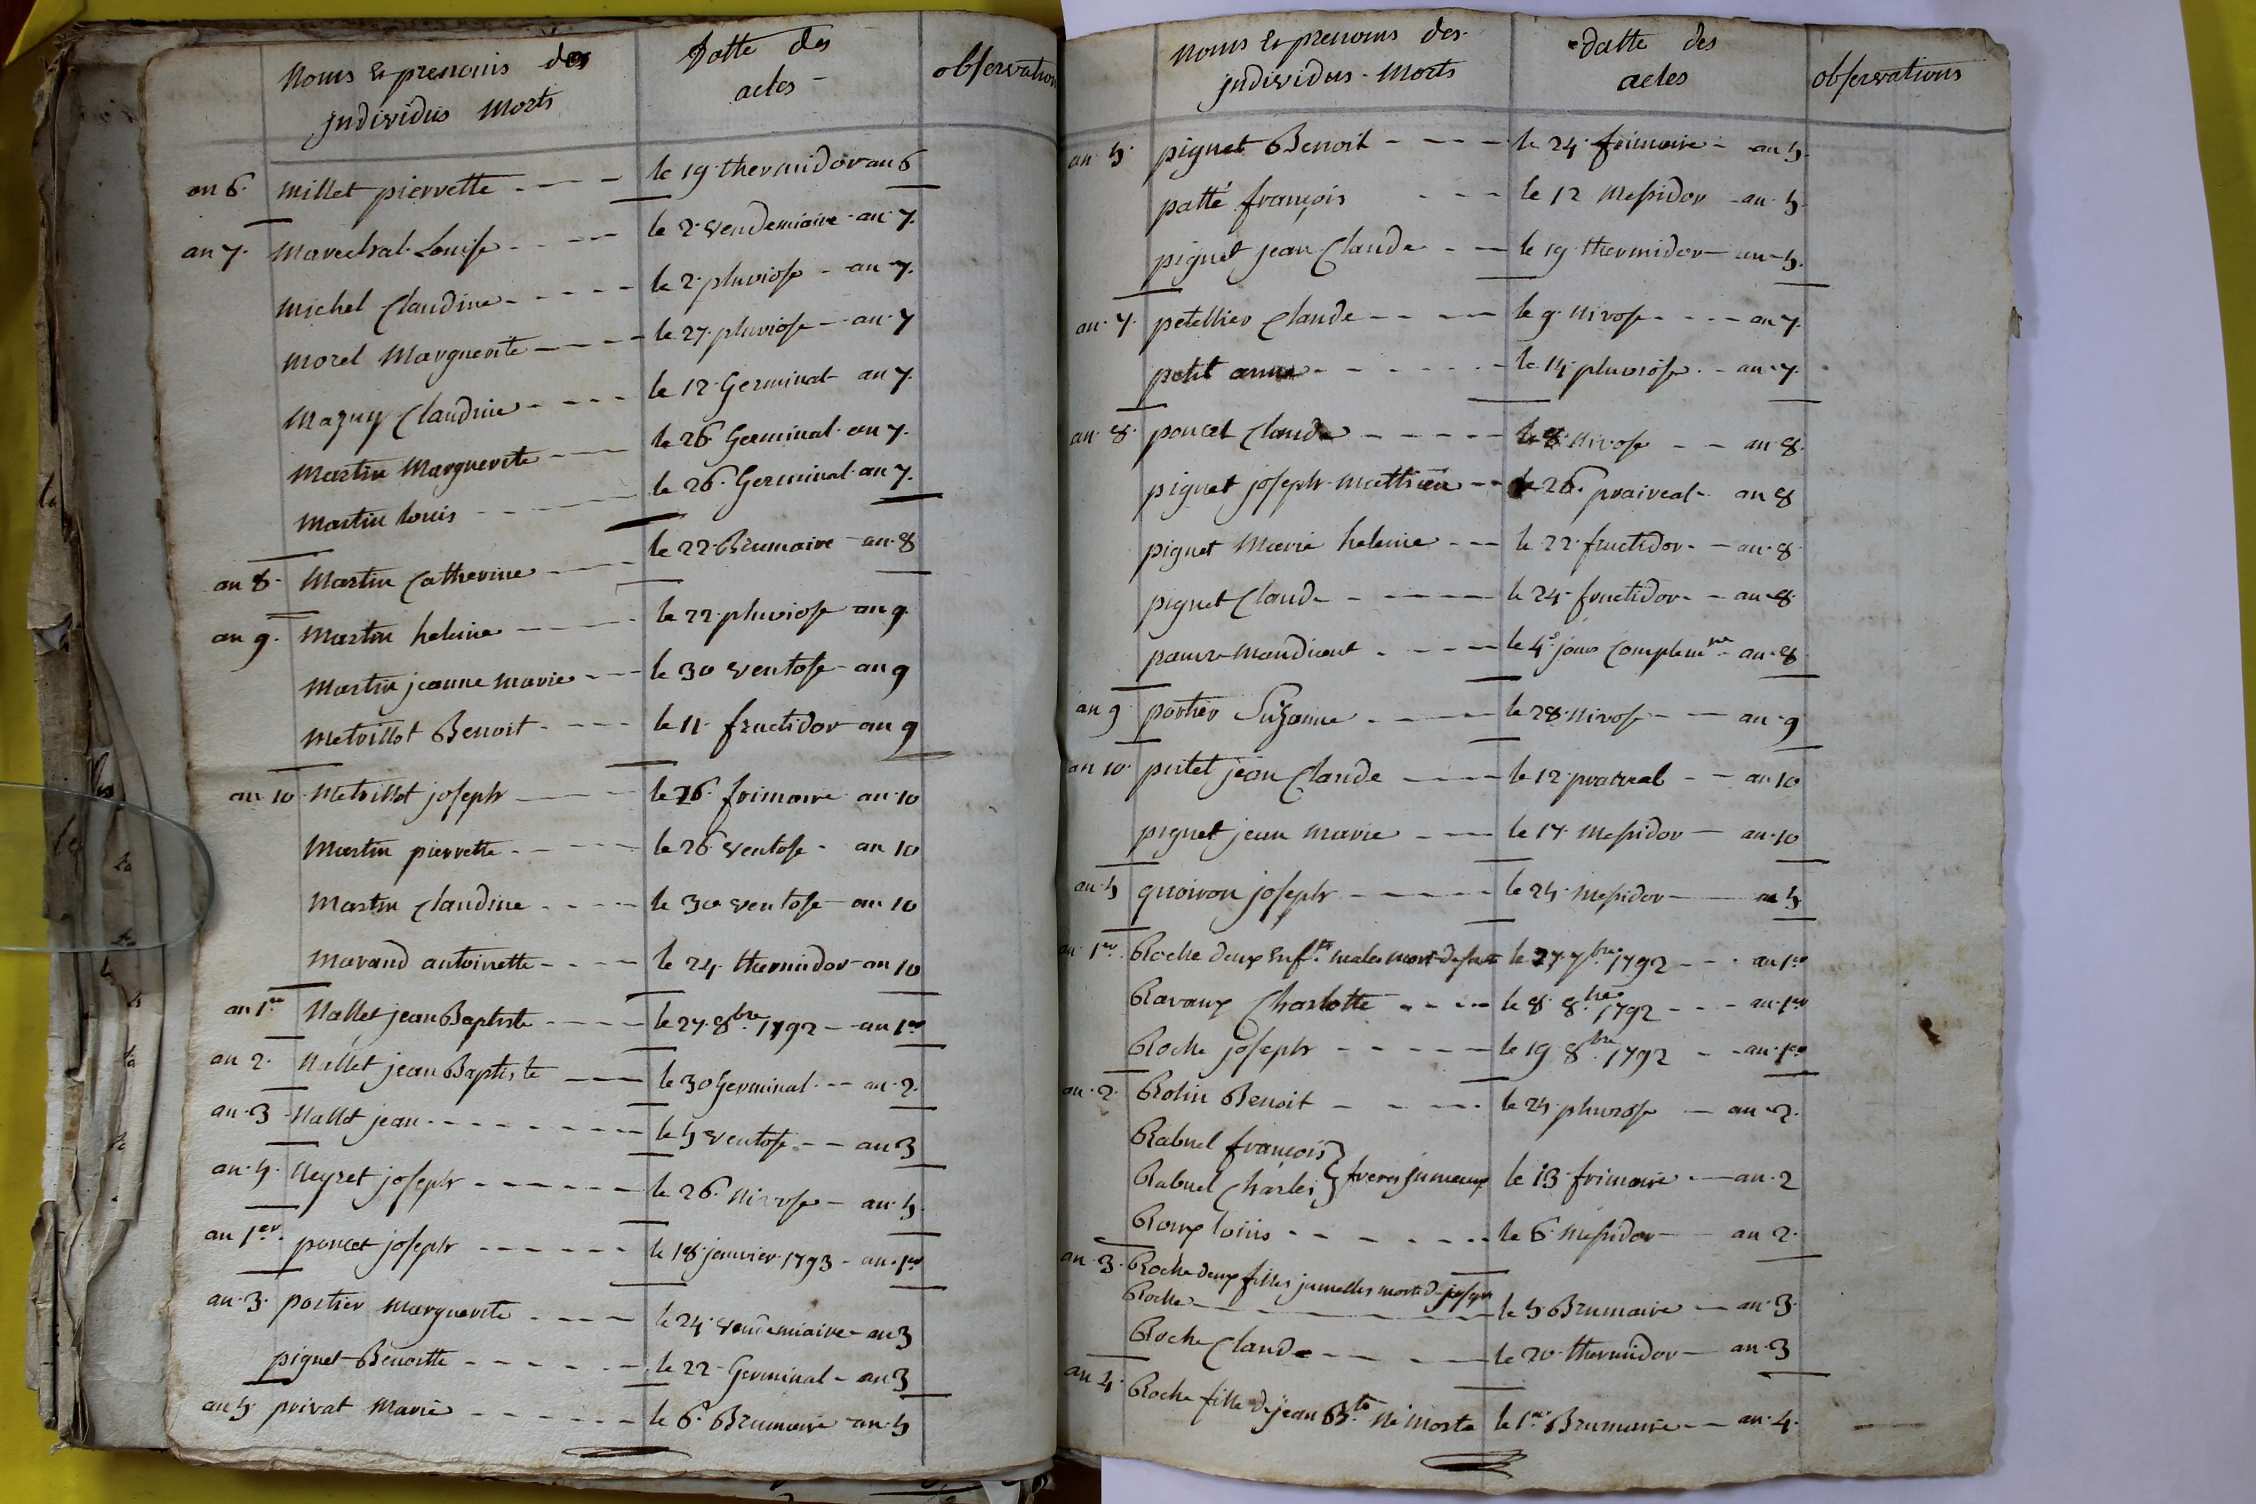 Noms & prenoms des
individus Morts
Datte des
actes
observation
an 6. Millet pierrette le 19 thermidor an 6
an 7. Marechal Louise le 2 vendemiaire an 7.
Michel Claudine le 2 pluviose an 7.
Morel Marguerite le 27 pluviose an 7
Mazuy Claudine le 12 Germinal an 7.
Martin Marguerite le 26 Germinal an 7.
Martin louis le 26 Germinal an 7.
an 8. Martin Catherine le 22 Brumaire an 8
an 9. Martin heleine le 22 pluviose an 9
Martin jeanne marie le 30 ventose an 9
Metrillot Benoit le 11 fructidor an 9
an 10 Metrillot joseph le 26 frimaire an 10
Martin pierrette le 26 ventose an 10
Martin Claudine le 30 ventose an 10
Marand antoinette le 24 thermidor an 10
an 1er Nallet jean Baptiste le 27 8bre 1792 an 1er
an 2. Nallet jean Baptiste le 30 Germinal an 2.
an 3 Nallet jean le 5 ventose an 3
an 5. Neyret joseph le 26 Nivose an 5.
an 1er poncet joseph le 18 janvier 1793 an 1er
an 3. portier Marguerite le 24 vendemiaire an 3
piguet Benoitte le 22 Germinal an 3
an 5 privat Marie le 6 Brumaire an 5
Noms & prenoms des
individus Morts
datte des
actes
observations
an 5. piguet Benoit le 24 frimaire an 5.
patté françois le 12 Messidor an 5.
piguet jean Claude le 19 thermidor an 5.
an 7. petellier Claude le 9 Nivose an 7.
petit anne le 14 pluviose an 7.
an 8. poncet Claude le 8 Nivose an 8.
piguet joseph Matthieu le 26 praireal an 8
piguet Marie heleine le 22 fructidor an 8
piguet Claude le 24 fructidor an 8.
pauvre mandiant le 4e jour Complemre an 8
an 9 portier Suzanne le 28 Nivose an 9
an 10. putet jean Claude le 12 prareal an 10
piguet jean Marie le 17 Messidor an 10
an 5 quoiron joseph le 24 Messidor an 5
an 1er Roche deux enfts males mort de le 27 7bre 1792 an 1er
Ravaux Charlotte le 8 8bre 1792 an 1er
Roche joseph le 19 8bre 1792 an 1er
an 2. Rolin Benoit le 24 pluviose an 2.
Rabuel françois
Rabuel Charles } freres jumeaux le 13 frimaire an 2
Roux louis le 6 Messidor an 2.
an 3. Roche deux filles jumelles morte de joseph
Roche le 5 Brumaire an 3.
Roche Claude le 20 thermidor an 3
an 4. Roche fille de jean Bte né morte le 1er Brumaire an 4.